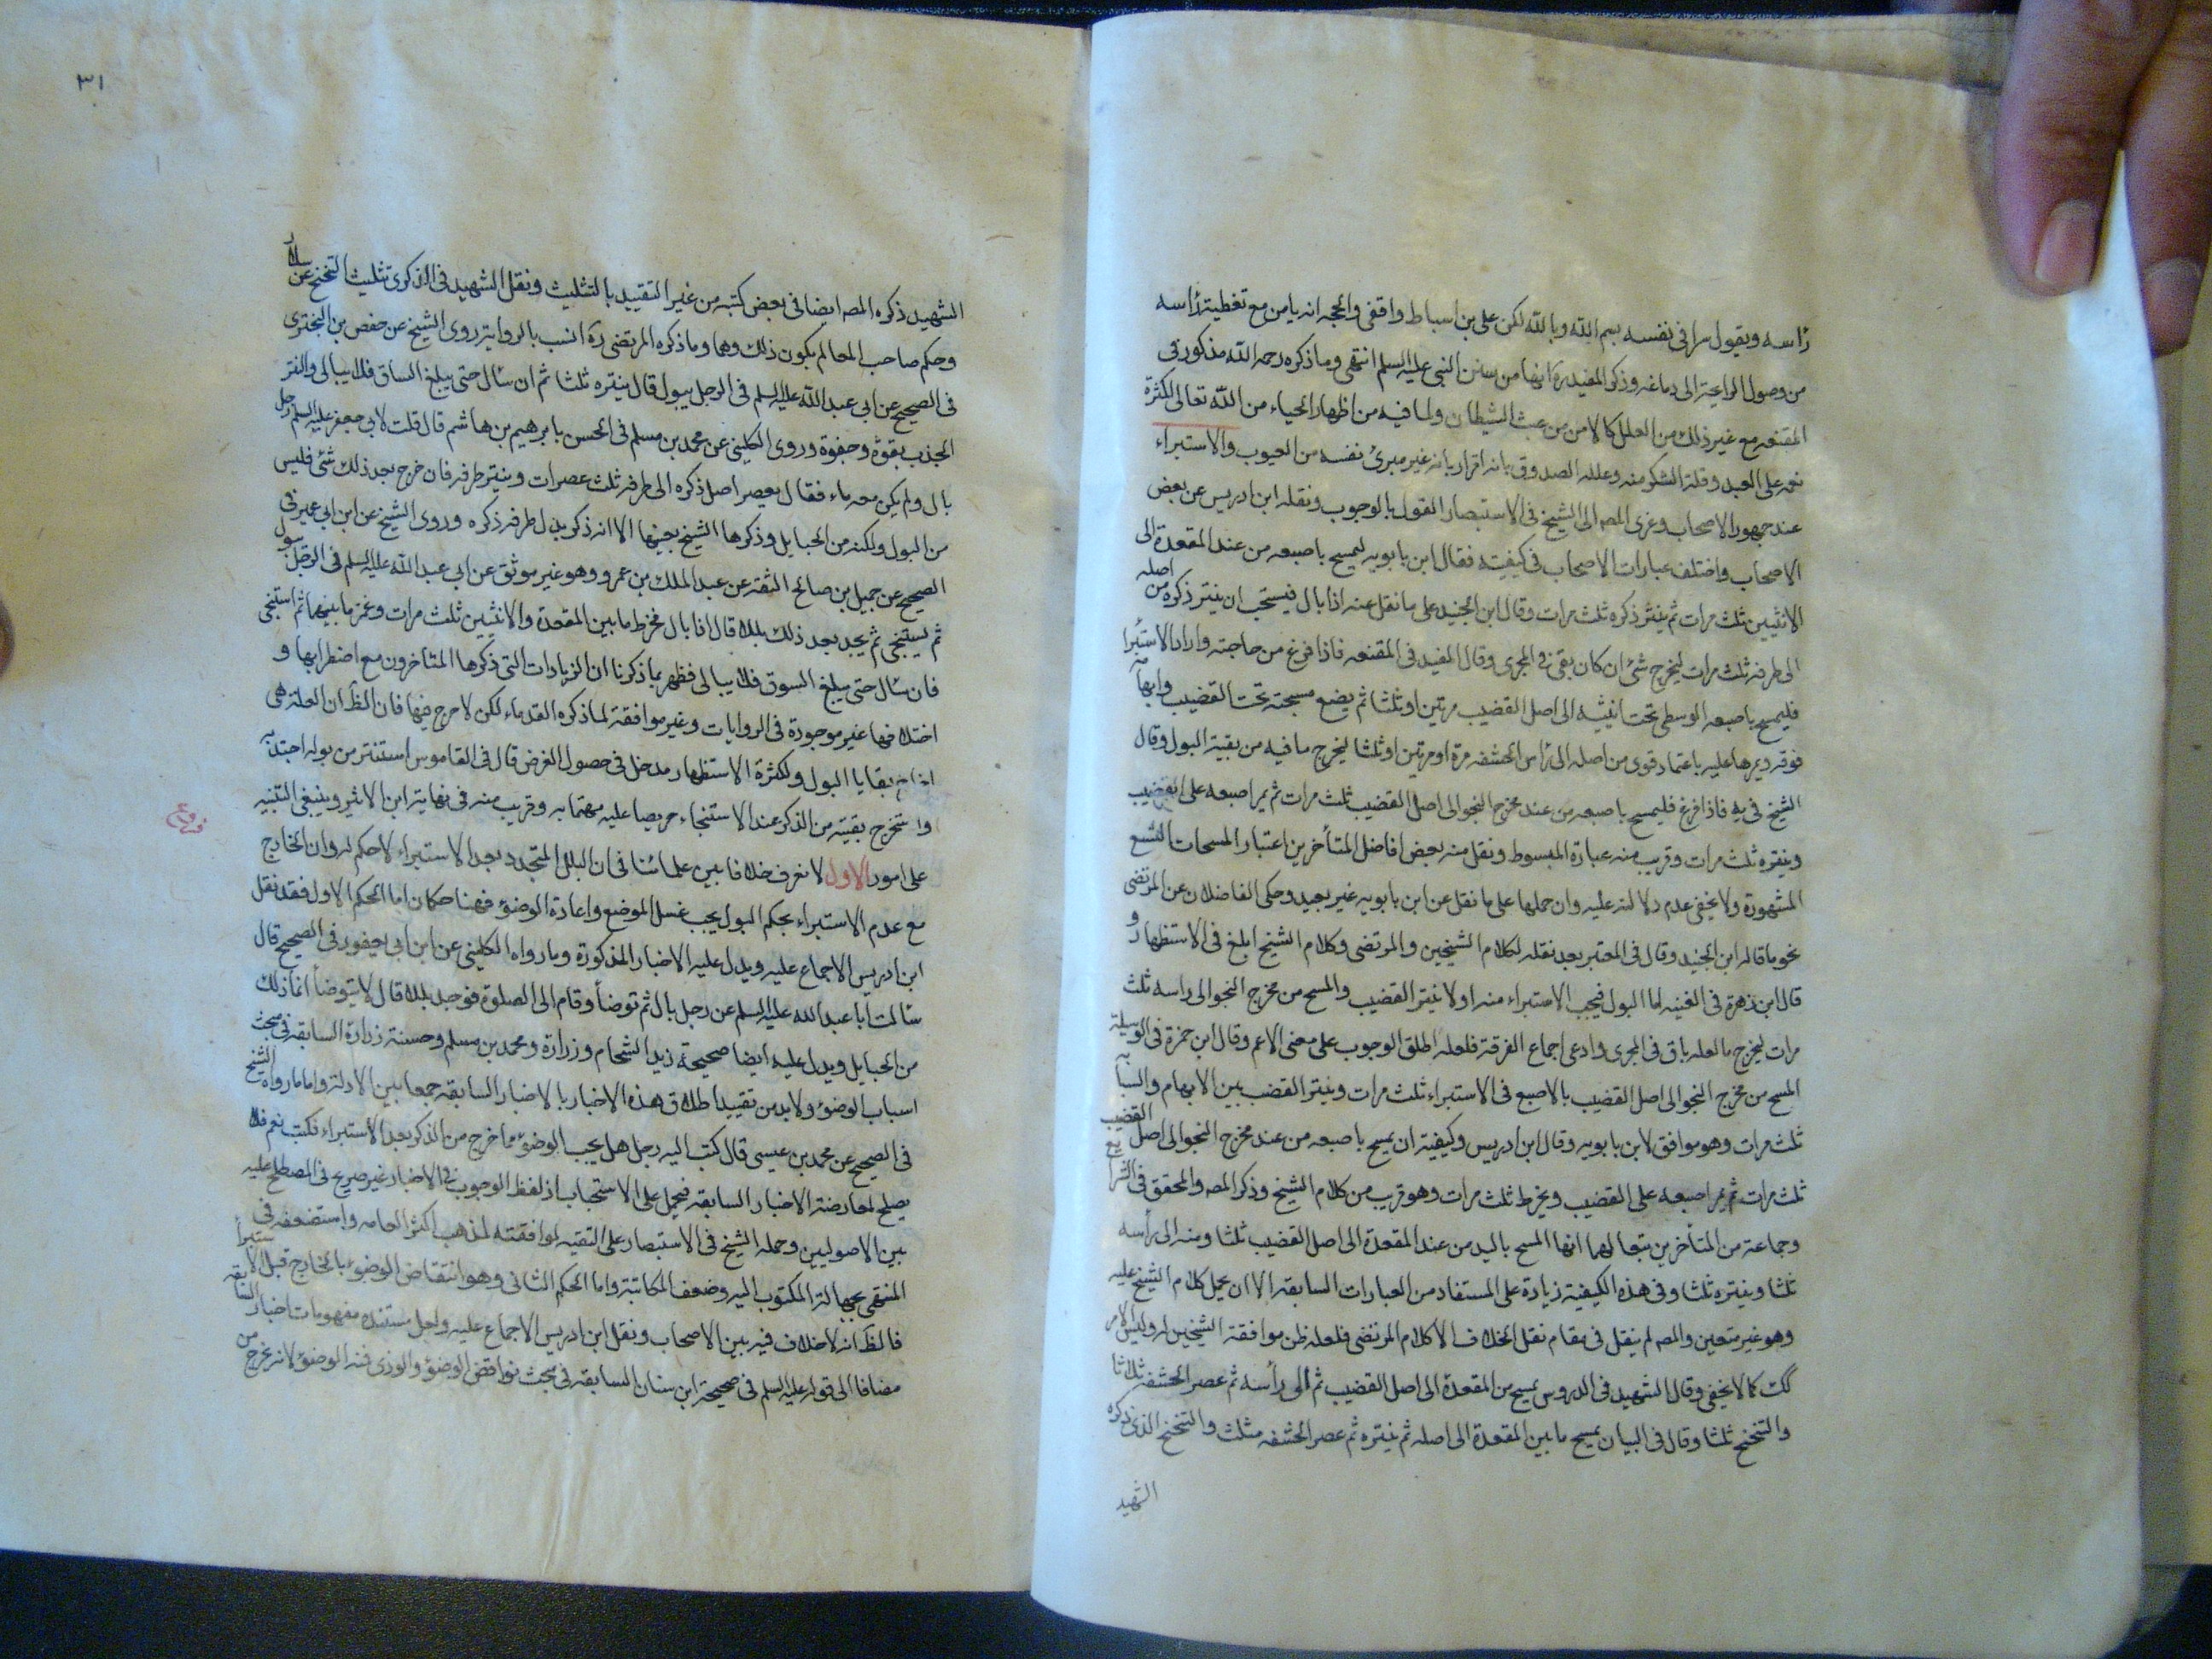 رأسه ويقول سرا في نفسه بسم الله وبالله لكن علي بن اسباط واقفى والحجة انه يأمن مع تغطية رأسه
من وصول الرايحة الى دماغه وذكر المفيد ره انها من سنن النبي عليه السلم انتهى وما ذكره رحمه الله مذكور في
المقنعه مع غير ذلك من العلل كالامن من عبث الشيطان ولما فيه من اظهار الحياء من الله تعالى لكثرة
نعمه على العبد وقلة الشكر منه وعلله الصدوق بانه اقرار بانه غير مبرئ نفسه من العيوب والاستبراء
عند جمهور الاصحاب وعزى المصه الى الشيخ في الاستبصار القول بالوجوب ونقله ابن ادريس عن بعض
الاصحاب واختلف عبارات الاصحاب في كيفيته فقال ابن بابويه ليمسح باصبعه من عند المقعدة الى
الانثيين ثلث مرات ثم ينتر ذكره ثلث مرات وقال ابن الجنيد على ما نقل عنه اذا بال فيستحب ان ينتر ذكره من اصله
الى طرفه ثلث مرات ليخرج شئ ان كان بقي في المجرى وقال المفيد في المقنعه فاذا فرغ من حاجته واراد الاستبرا
فليمسح باصبعه الوسطى تحت انثييه الى اصل القضيب مرتين او ثلثا ثم يضع مسبحته تحت القضيب وابهامه
فوقه ويمرها عليه باعتماد قوى من اصله الى رأس الحشفه مرة او مرتين او ثلثا ليخرج ما فيه من بقية البول وقال
الشيخ في يه فاذا فرغ فليمسح باصبعه من عند مخرج النجو الى اصل القضيب ثلث مرات ثم يمر اصبعه على القضيب
وينتره ثلث مرات وقريب منه عبارة المبسوط ونقل منه بعض افاضل المتأخرين اعتبار المسحات التسع
المشهورة ولا يخفى عدم دلالته عليه وان حملها على ما نقل عن ابن بابويه غير بعيد وحكى الفاضلان عن المرتضى
نحو ما قاله ابن الجنيد وقال في المعتبر بعد نقله لكلام الشيخين والمرتضى وكلام الشيخ ابلغ في الاستظهار و
قال ابن زهرة في الغنيه اما البول فيجب الاستبراء منه اولا بنتر القضيب والمسح من مخرج النجو الى راسه ثلث
مرات ليخرج ما لعله باق في المجرى وادعى اجماع الفرقة فلعله اطلق الوجوب على معنى الاعم وقال ابن حمزة في الوسيلة
المسح من مخرج النجو الى اصل القضيب بالاصبع في الاستبراء ثلث مرات وينتر القضيب بين الابهام والسبابه
ثلث مرات وهو موافق لابن بابويه وقال ابن ادريس وكيفيته ان يمسح باصبعه من عند مخرج النجو الى اصل القضيب
ثلث مرات ثم يمر اصبعه على القضيب ويخرط ثلث مرات وهو قريب من كلام الشيخ وذكر المصه والمحقق في الشرايع
وجماعة من المتأخرين تبعا لهما انها المسح باليد من عند المقعدة الى اصل القضيب ثلثا ومنه الى رأسه
ثلثا وينتره ثلثا وفي هذه الكيفية زيادة على المستفاد من العبارات السابقه الا ان يحمل كلام الشيخ عليه
وهو غير متعين والمصه لم ينقل في مقام نقل الخلاف الا كلام المرتضى فلعله ظن موافقة الشيخين له وليس الامر
كك كما لا يخفى وقال الشهيد في الدروس يمسح من المقعدة الى اصل القضيب ثم الى رأسه ثم عصر الحشفه ثلاثا
والتنحنح ثلثا وقال في البيان يمسح ما بين المقعدة الى اصله ثم ينتره ثم عصر الحشفه مثلث والتنحنح الذي ذكره
الشهيد
٣١
الشهيد ذكره المصه ايضا في بعض كتبه من غير التقييد بالتثليث ونقل الشهيد في الذكرى تثليث التنحنح عن سلار
وحكم صاحب المعالم بكون ذلك وهما وما ذكره المرتضى ره انسب بالرواية روى الشيخ عن حفص بن البخترى
في الصحيح عن ابي عبد الله عليه السلم في الرجل يبول قال ينتره ثلثا ثم ان سال حتى يبلغ الساق فلا يبالي والنتر
الجذب بقوة وجفوة وروى الكليني عن محمد بن مسلم في الحسن بابرهيم بن هاشم قال قلت لابي جعفر عليه السلم رجل
بال ولم يكن معه ماء فقال يعصر اصل ذكره الى طرفه ثلث عصرات وينتر طرفه فان خرج بعد ذلك شئ فليس
من البول ولكنه من الحبايل وذكرها الشيخ بعينها الا انه ذكر بدل طرفه ذكره وروى الشيخ عن ابن ابي عمير في
الصحيح عن جميل بن صالح الثقة عن عبد الملك بن عمرو وهو غير موثق عن ابي عبد الله عليه السلم في الرجل يبول
ثم يستنجي ثم يجد بعد ذلك بللا قال اذا بال فخرط ما بين المقعدة والانثيين ثلث مرات وغمز ما بينهما ثم استنجى
فان سال حتى يبلغ السوق فلا يبالي فظهر بما ذكرنا ان الزيادات التي ذكرها المتاخرون مع اضطرابها و
اختلافها غير موجودة في الروايات وغير موافقة لما ذكره القدماء لكن لا حرج فيها فان الظ ان العلة هي
بقايا البول ولكثرة الاستظهار مدخل في حصول الغرض قال في القاموس استنتر من بوله اجتذبه
واستخرج بقيته من الذكر عند الاستنجاء حريصا عليه مهتما به وقريب منه في نهاية ابن الاثير وينبغي التنبيه
على امور الاول لا نعرف خلافا بين علمائنا في ان البلل المتجدد بعد الاستبراء لا حكم له وان الخارج
مع عدم الاستبراء بحكم البول يجب غسل الموضع واعادة الوضوء فهنا حكمان اما الحكم الاول فقد نقل
ابن ادريس الاجماع عليه ويدل عليه الاخبار المذكورة وما رواه الكليني عن ابن ابي يعفور في الصحيح قال
سألت أبا عبد الله عليه السلم عن رجل بال ثم توضأ وقام الى الصلوة فوجد بللا قال لا يتوضأ انما ذلك
من الحبايل ويدل عليه ايضا صحيحة زيد الشحام وزرارة ومحمد بن مسلم وحسنة زرارة السابقه في مبحث
اسباب الوضوء ولا بد من تقييد اطلاق هذه الاخبار بالاخبار السابقه جمعا بين الادلة واما ما رواه الشيخ
في الصحيح عن محمد بن عيسى قال كتب اليه رجل هل يجب الوضوء مما خرج من الذكر بعد الاستبراء فكتب نعم فلا
يصلح لمعارضة الاخبار السابقه فيحمل على الاستحباب اذ لفظ الوجوب في الاخبار غير صريح في المصطلح عليه
بين الاصوليين وحمله الشيخ في الاستبصار على التقيه لموافقته لمذهب اكثر العامه واستضعفه في
المنتهى بجهالة المكتوب اليه وضعف المكاتبة واما الحكم الثاني وهو انتقاض الوضوء بالخارج قبل الاستبرأ
فالظ انه لا خلاف فيه بين الاصحاب ونقل ابن ادريس الاجماع عليه ولعل مستنده مفهومات اخبار السابقه
مضافا الى قوله عليه السلم في صحيحة ابن سنان السابقه في مبحث نواقض الوضوء والودي فمنه الوضوء لانه يخرج من